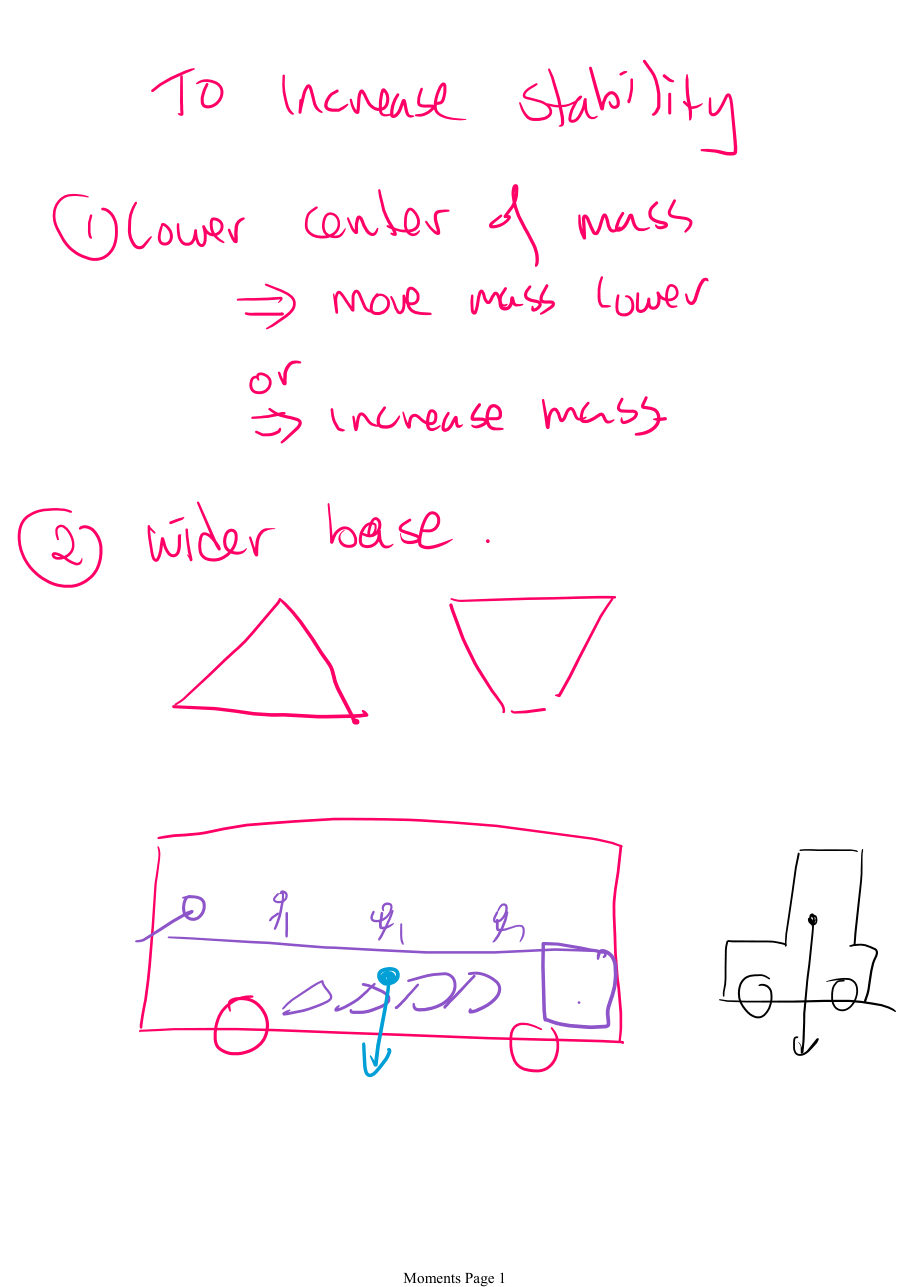 To Increase stability
① Lower center of mass
⇒ move mass lower
or
⇒ increase mass
② wider base.
Moments Page 1